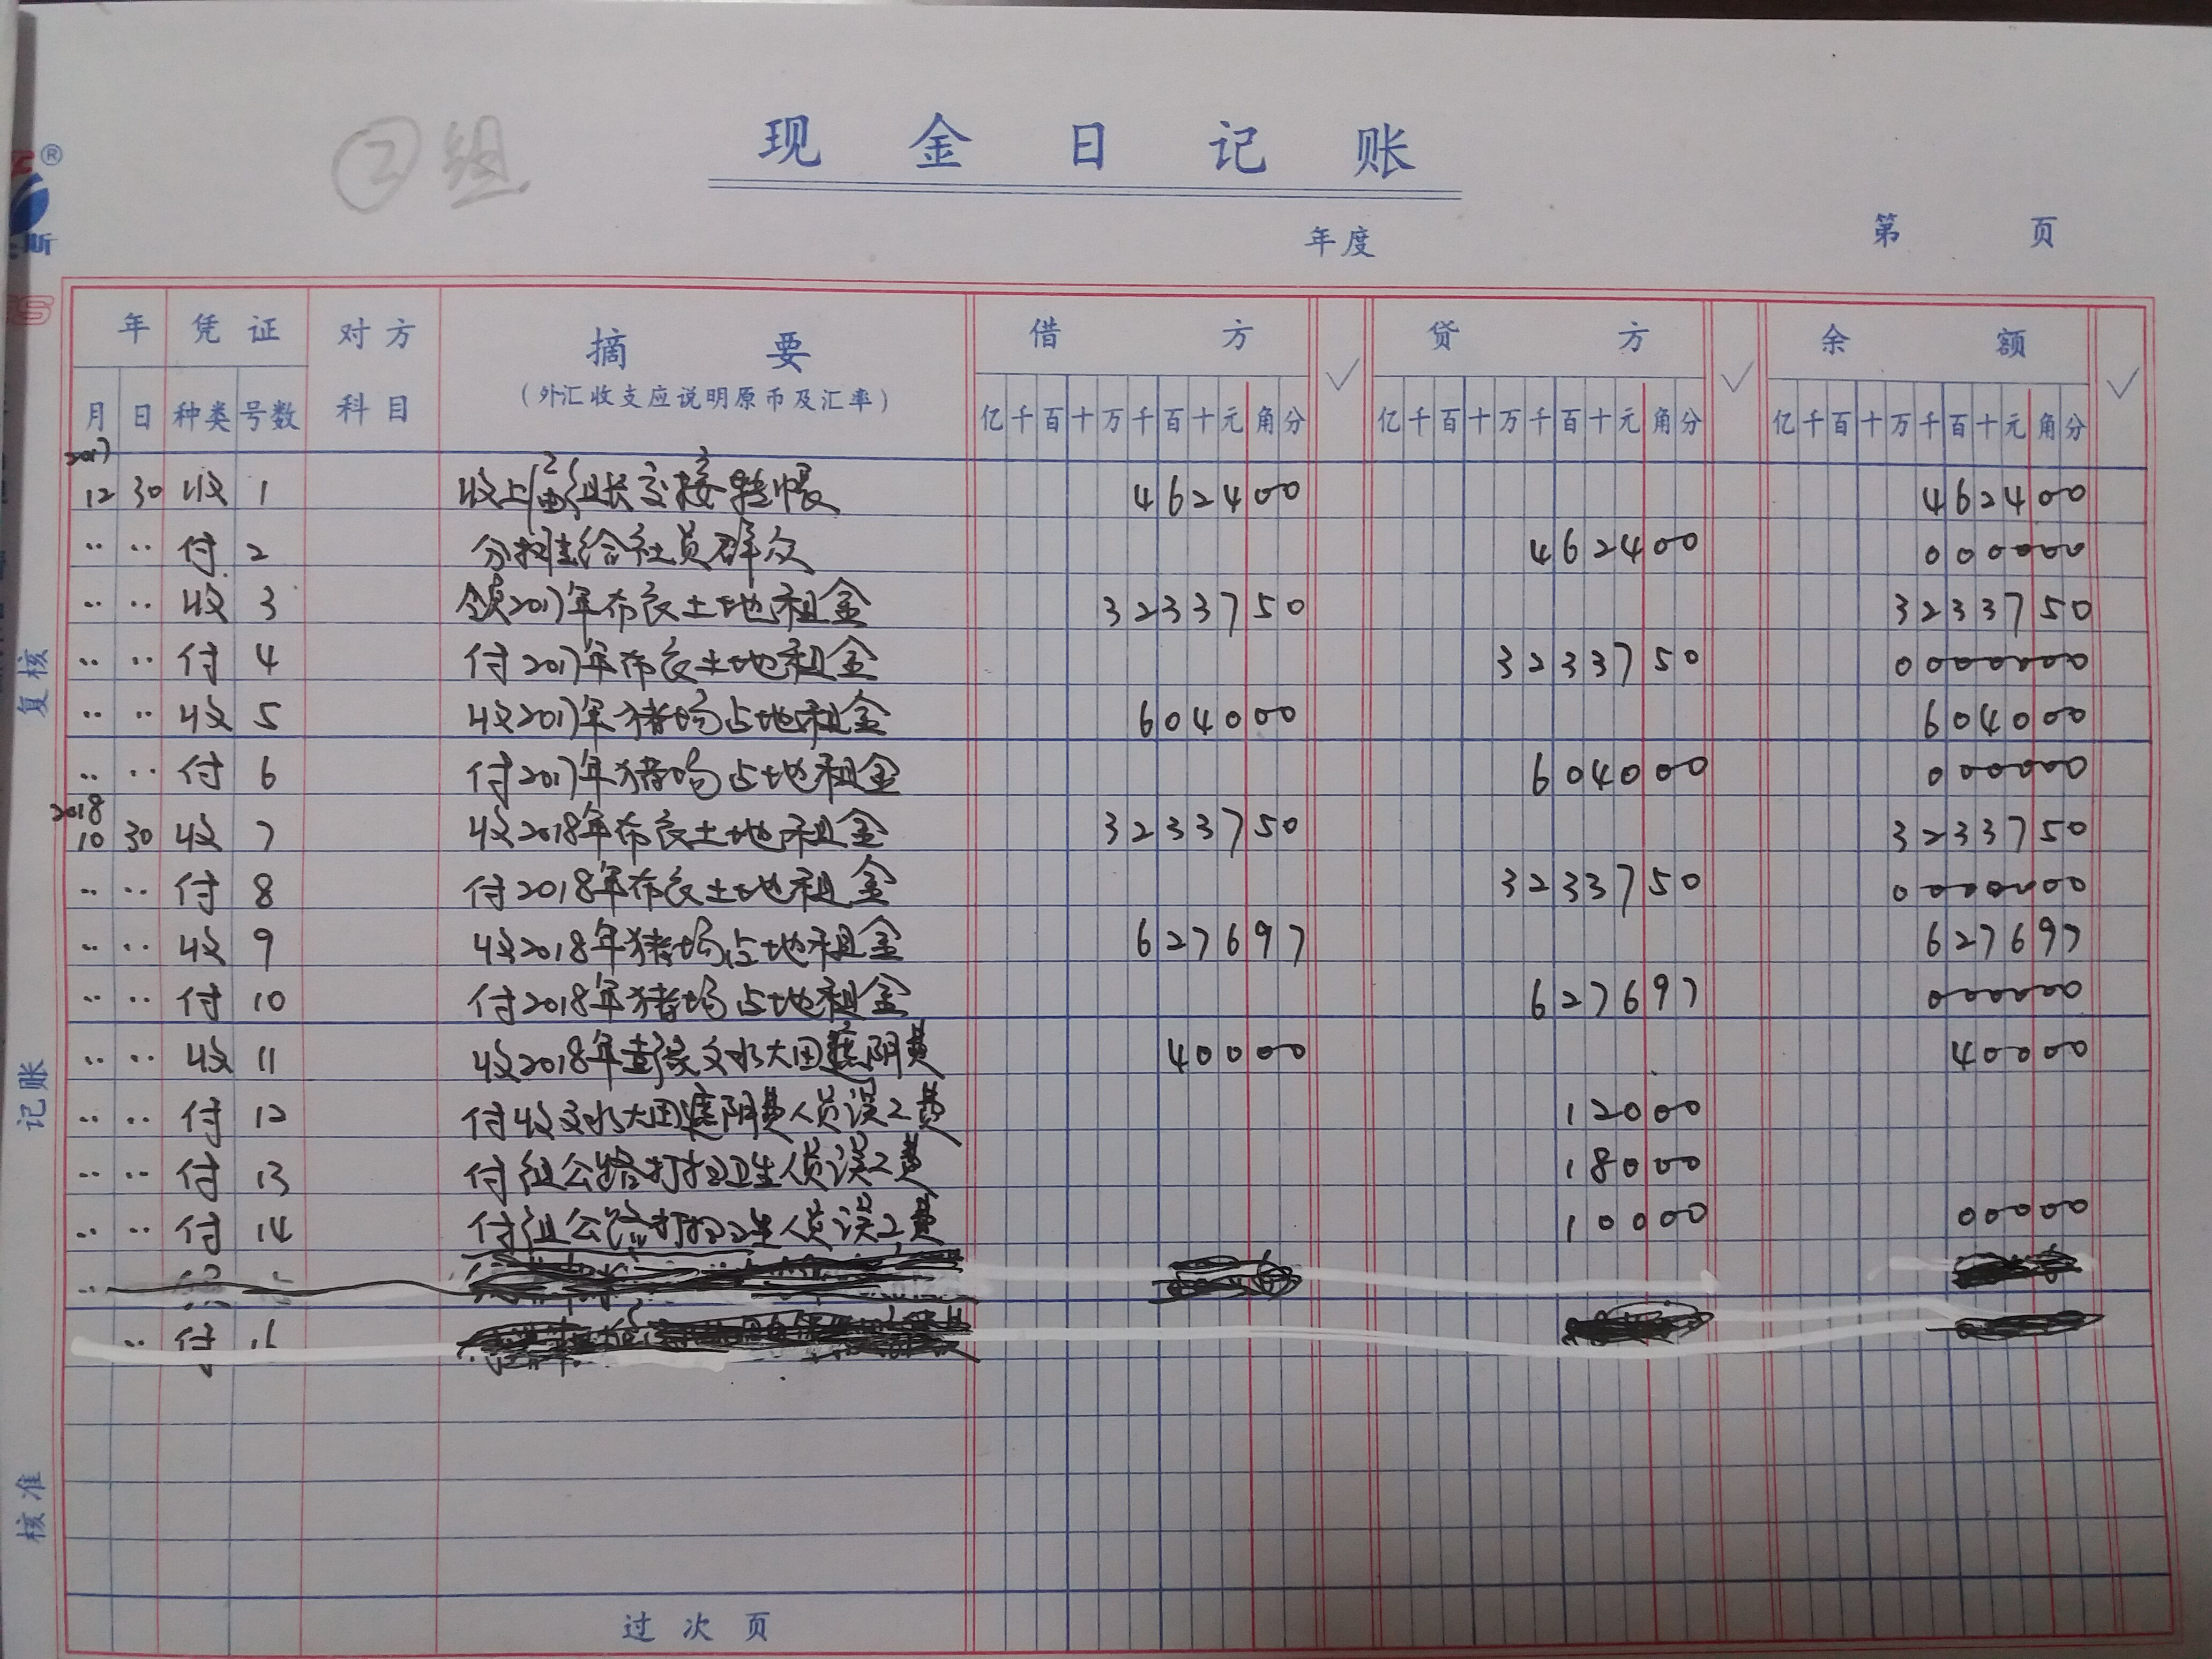 ②组
现金日记账
年度
第 页
年 凭证 对方科目 摘要 借方 ✓ 贷方 ✓ 余额 ✓
(外汇收支应说明原币及汇率)
月 日 种类 号数 亿千百十万千百十元角分 亿千百十万千百十元角分 亿千百十万千百十元角分
2017
12 30 收 1 收上届2组长交接转账 462400 462400
·· ·· 付 2 分摊给社员群众 462400 000000
·· ·· 收 3 领2017年布衣土地租金 3233750 3233750
·· ·· 付 4 付2017年布衣土地租金 3233750 0000000
·· ·· 收 5 收2017年猪场占地租金 604000 604000
·· ·· 付 6 付2017年猪场占地租金 604000 000000
2018
10 30 收 7 收2018年布衣土地租金 3233750 3233750
·· ·· 付 8 付2018年布衣土地租金 3233750 0000000
·· ·· 收 9 收2018年猪场占地租金 627697 627697
·· ·· 付 10 付2018年猪场占地租金 627697 000000
·· ·· 收 11 收2018年彭家文水大田遮阴费 40000 40000
·· ·· 付 12 付收文水大田遮阴费人员误工费 12000
·· ·· 付 13 付组公路打扫卫生人员误工费 18000
·· ·· 付 14 付组公路打扫卫生人员误工费 10000 00000
·· 付
过次页
复核
记账
核准
®
斯